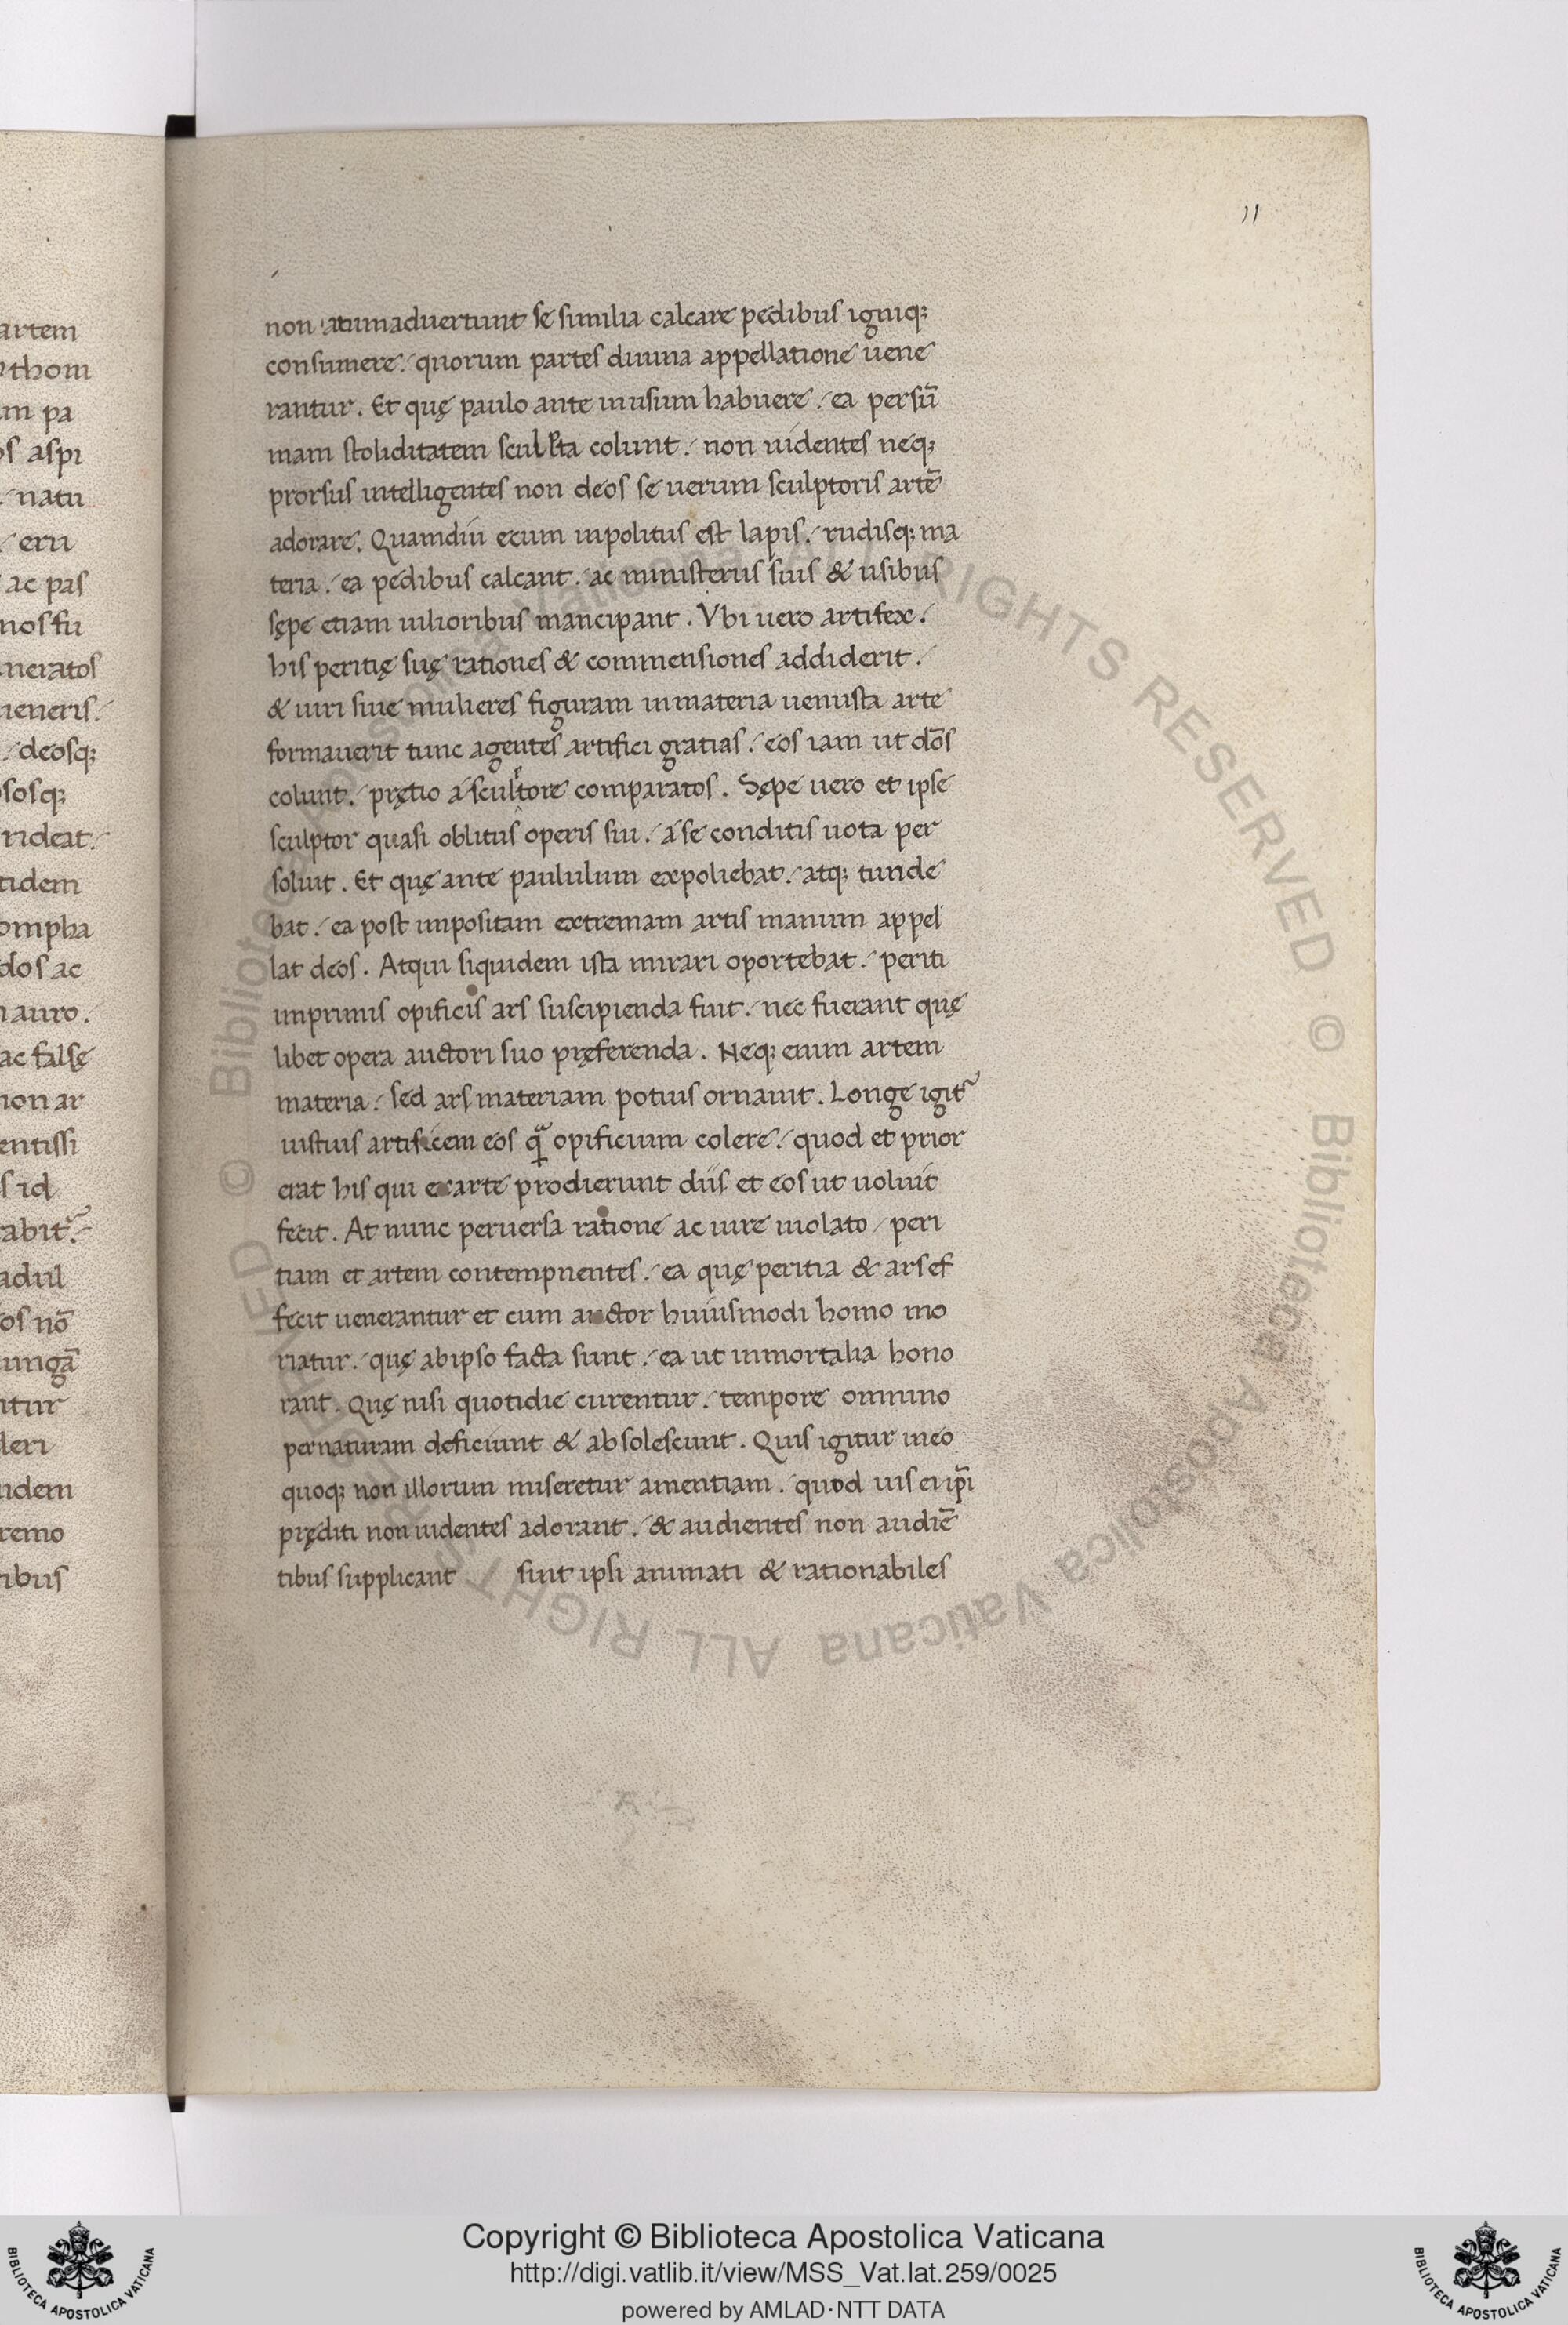 artem
thom
m pa
os aspi
natu
eru
ac pas
nos fu
neratos
ueneris
deosq;
sosq;
rideat
tidem
ompha
dos ac
n auro.
ac falsę
non ar
entissi
s id
abit᷑
adul
os nō
iungā
ntur
leri
idem
remo
tibus
11
non animaduertunt se similia calcare pedibus igniq;
consumere. quorum partes diuina appellatione uene
rantur. Et quę paulo ante in usum habuere. ea per sū
mam stoliditatem sculpta colunt. non uidentes neq;
prorsus intelligentes non deos se uerum sculptoris artē
adorare. Quamdiu ecum inpolitus est lapis. rudisq; ma
teria. ea pedibus calcant. ac ministeriis suis & usibus
sępe etiam uilioribus mancipant. Vbi uero artifex.
his peritię suę rationes & commensiones addiderit.
& uiri siue mulieres figuram in materia uenusta arte
formauerit tunc agentes artifici gratias. eos iam ut dōs
colunt. prętio a sculptore comparatos. Sępe uero et ipse
sculptor quasi oblitus operis sui. a se conditis uota per
soluit. Et quę ante paululum expoliebat. atq; tunde
bat. ea post impositam extremam artis manum appel
lat deos. Atqui siquidem ista mirari oportebat. periti
imprimis opificis ars suscipienda fuit. nec fuerant quę
libet opera auctori suo pręferenda. Neq; enim artem
materia. sed ars materiam potius ornauit. Longe igit᷑
iustius artificem eos q̄ opificium colere. quod et prior
erat his qui ex arte prodierunt diis et eos ut uoluit
fecit. At nunc peruersa ratione ac iure uiolato peri
tiam et artem contempnentes. ea quę peritia & ars ef
fecit uenerantur et cum auctor huiusmodi homo mo
riatur. quę ab ipso facta sunt. ea ut inmortalia hono
rant. Quę nisi quotidie curentur. tempore omnino
per naturam deficiunt & absolescunt. Quis igitur in eo
quoq; non illorum miseretur amentiam. quod uisei ip̄i
pręditi non uidentes adorant. & audientes non audiē
tibus supplicant sint ipsi animati & rationabiles
© Biblioteca Apostolica Vaticana ALL RIGHTS RESERVED © Biblioteca Apostolica Vaticana ALL RIGHTS RESERVED
Copyright © Biblioteca Apostolica Vaticana
http://digi.vatlib.it/view/MSS_Vat.lat.259/0025
powered by AMLAD·NTT DATA
BIBLIOTECA APOSTOLICA VATICANA
BIBLIOTECA APOSTOLICA VATICANA